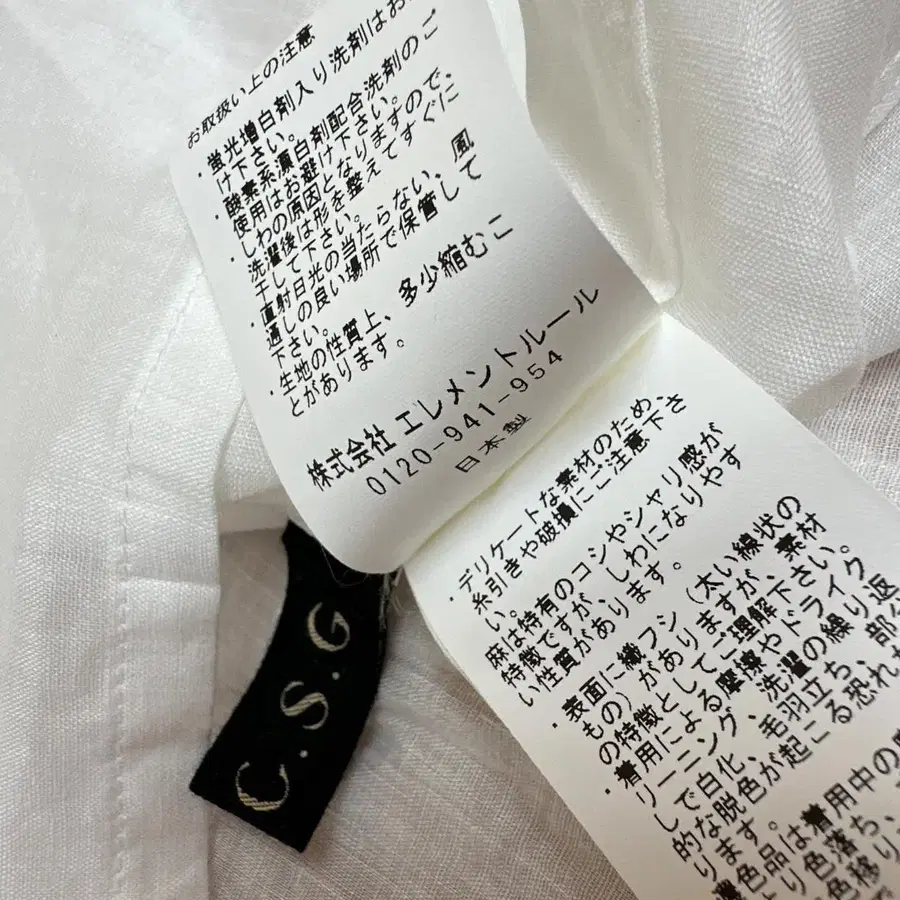 お取扱い上の注意
蛍光増白剤入り洗剤はお
け下さい。
・酸素系漂白剤配合洗剤のご
使用はお避け下さい。
しわの原因となりますので、
洗濯後は形を整えてすぐに
干して下さい。
・直射日光の当たらない、風
通しの良い場所で保管して
下さい。
・生地の性質上、多少縮むこ
とがあります。
株式会社 エレメントルール
0120-941-954
日本製
・デリケートな素材のため、
糸引きや破損にご注意下さ
い。
麻は特有のコシやシャリ感が
特徴ですが、しわになりやす
い性質があります。
・表面に織フシ(太い線状の
もの)がありますが、素材
の特徴としてご理解下さい。
着用による摩擦やドライク
リーニング、洗濯の繰り返
しで白化、毛羽立ち、部分
的な脱色が起こる恐れ
ります。
濃色品は着用中の
より色落ち、
色移り
C.S.G